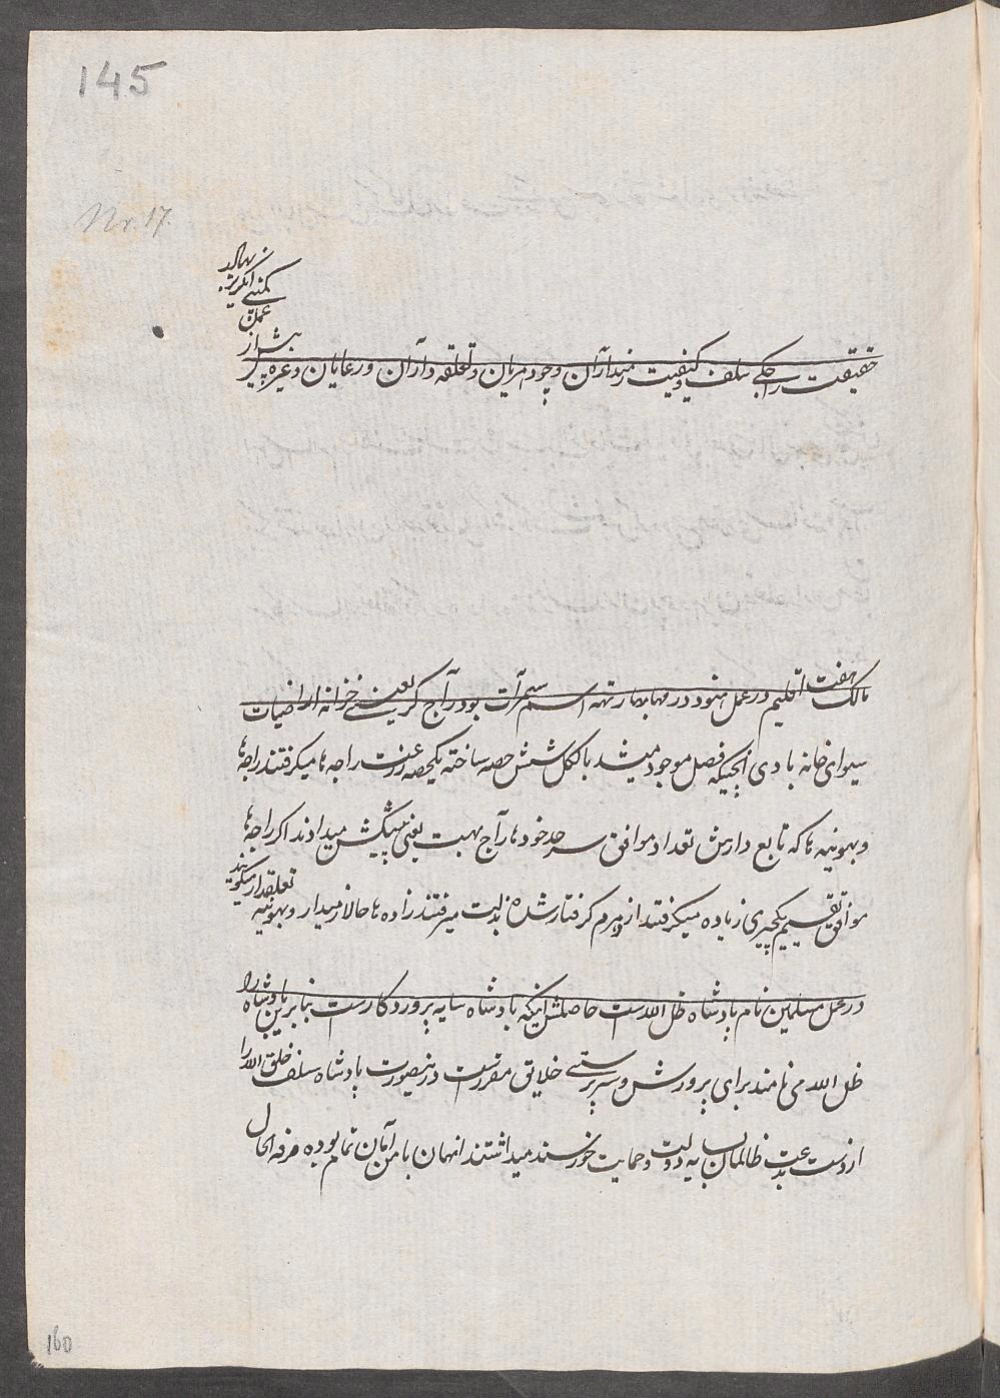 145
Nr. 17.
حقیقت راجکی سلف و کیفیت زمینداران وچودهریان وتعلقه داران ورعایان وغیره پیشتر از
عمل
کمپنی انگریز بهادر
مالک هفت اقلیم در عمل هنود در مهابهارتهه اسم سمرآت بود رآج کر یعنی خزانه اراضیات
سیوای خانه بادی انچیکه فصل موجود میشد بالکل شش حصه ساخته یکحصه راجه ها میکرفتند راجه ها
وبهونیه ها که تابع دارش تعداد موافق سرحد خودها رآج بهت یعنی پیشکش میدادند اکر راجه ها
موافق تقسیم یکچیزی زیاده میکرفتند از دهرم کرفتار شده بذلت میرفتند زاده ها حالا زمیدار وبهونیه تعلقدار میکویند
در عمل مسلمین نام پادشاه ظل الله ست حاصلش اینکه بادشاه سایه پروردکارست بنابرین بادشاه را
ظل الله می نامند برای پرورش وسرپرستی خلایق مقررست درینصورت پادشاه سلف خلق الله را
از دست بدعت ظالمان بسایه دولت وحمایت خورسند میداشتند انهمان بامن آمان تمام بوده مرفه الحال
160